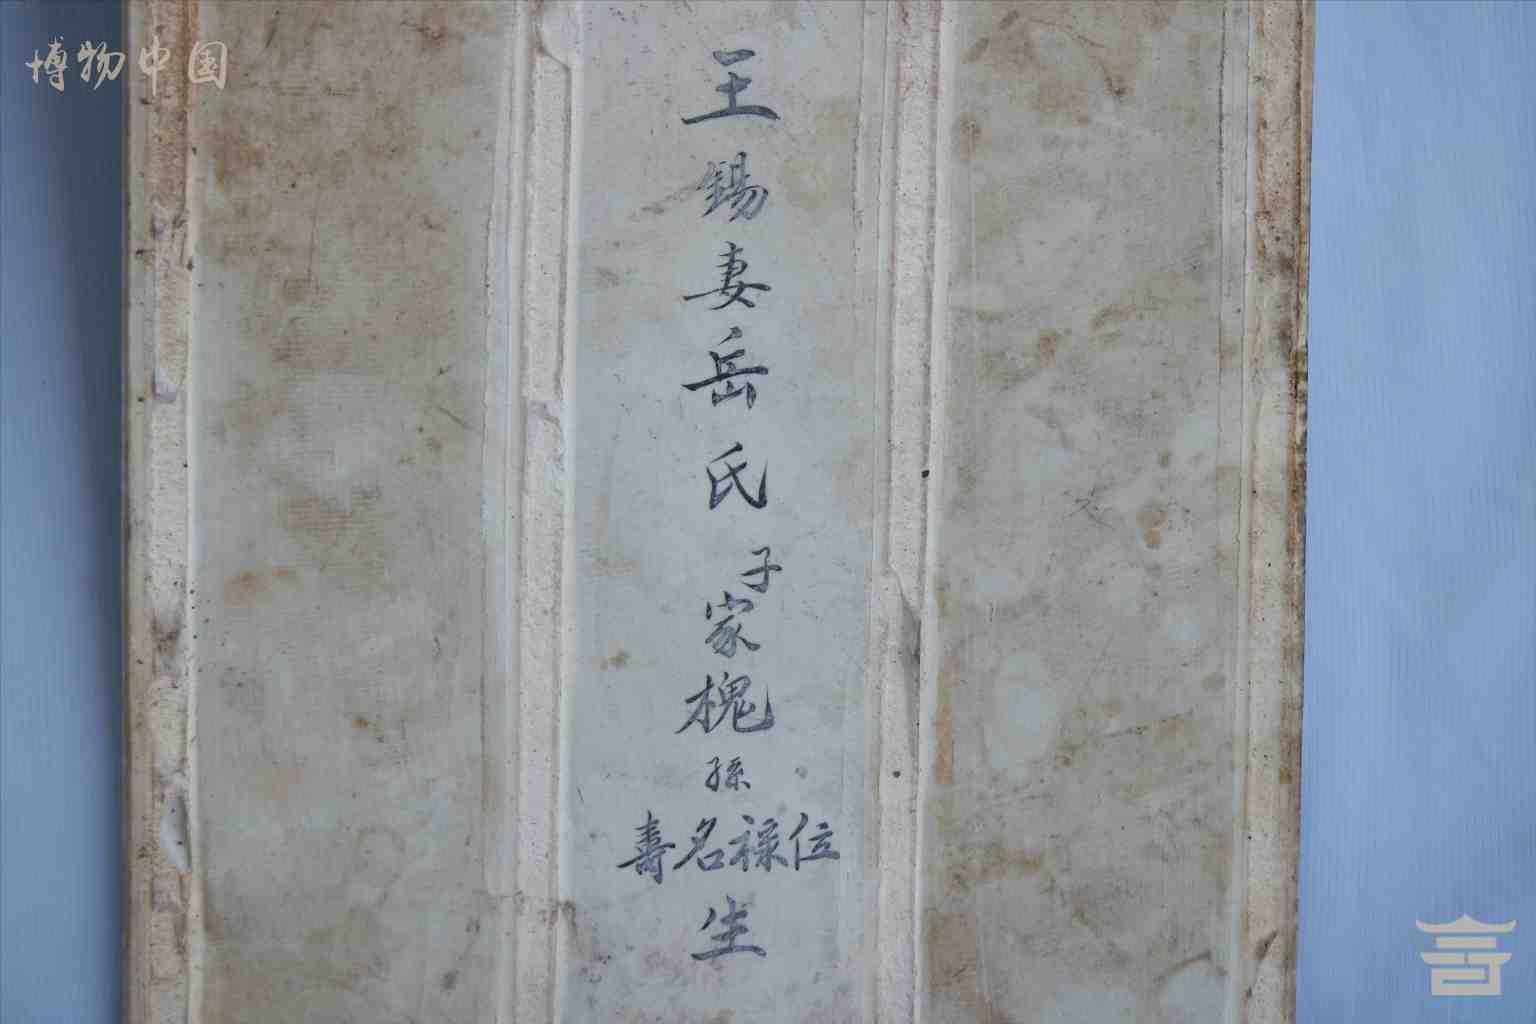 博物中国
王锡妻岳氏
子
家槐
孫
位禄名壽
生